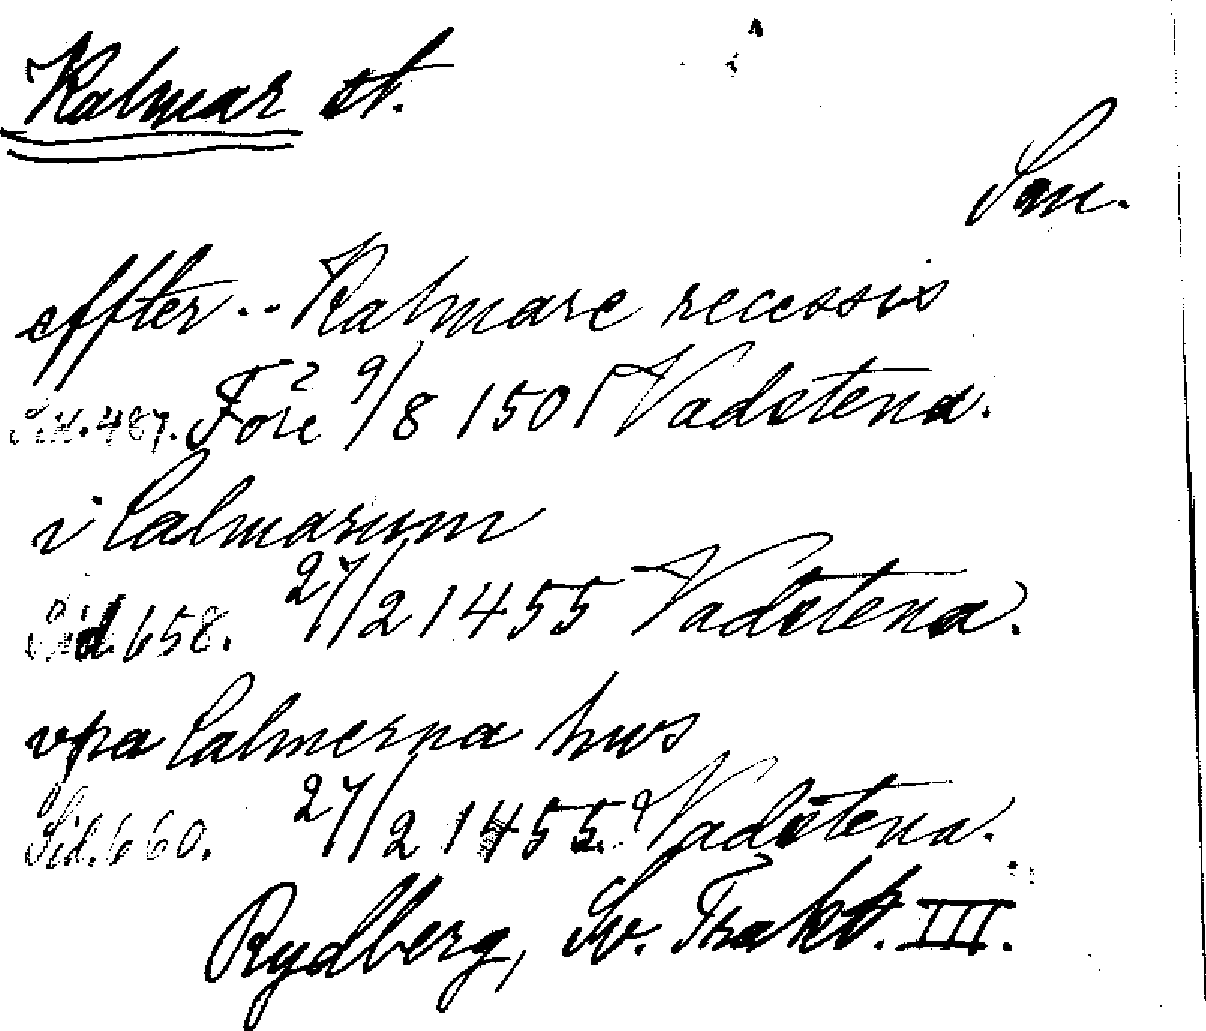 Kalmar st.
Sm.
effter .. Kalmare recessis
Sid. 487. Före 9/8 1501 Vadstena.
i Calmarum
Sid. 658. 27/2 1455 Vadstena.
vpa Calmerna hws
Sid. 660. 27/2 1455. Vadstena.
Rydberg, Sv. Trakt. III.